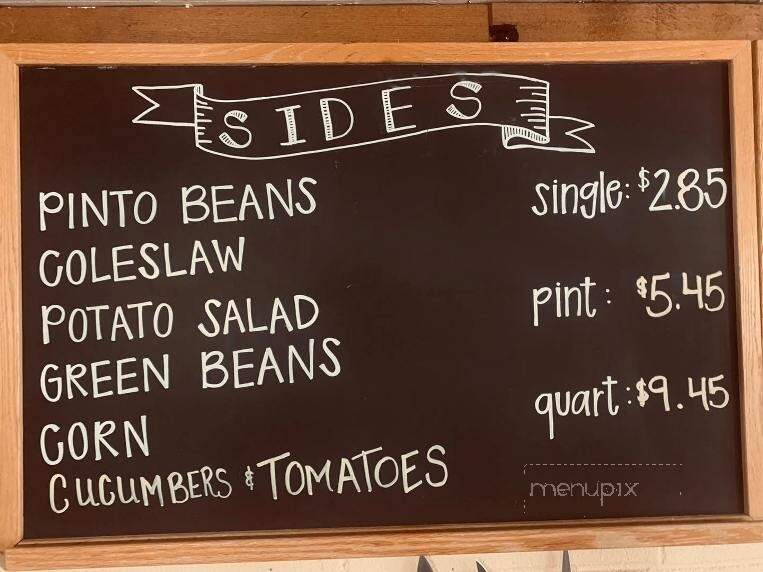 SIDES
PINTO BEANS
COLESLAW
POTATO SALAD
GREEN BEANS
CORN
CUCUMBERS & TOMATOES
single: $2.85
pint: $5.45
quart: $9.45
menupix